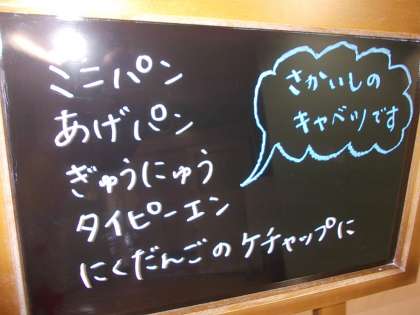 ミニパン
あげパン
ぎゅうにゅう
タイピーエン
にくだんごのケチャップに
さかいしの
キャベツです